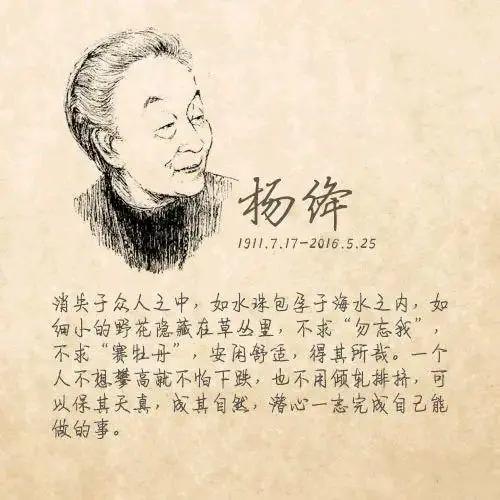 杨绛
1911.7.17-2016.5.25
消失于众人之中，如水珠包孕于海水之内，如
细小的野花隐藏在草丛里，不求“勿忘我”，
不求“赛牡丹”，安闲舒适，得其所哉。一个
人不想攀高就不怕下跌，也不用倾轧排挤，可
以保其天真，成其自然，潜心一志完成自己能
做的事。